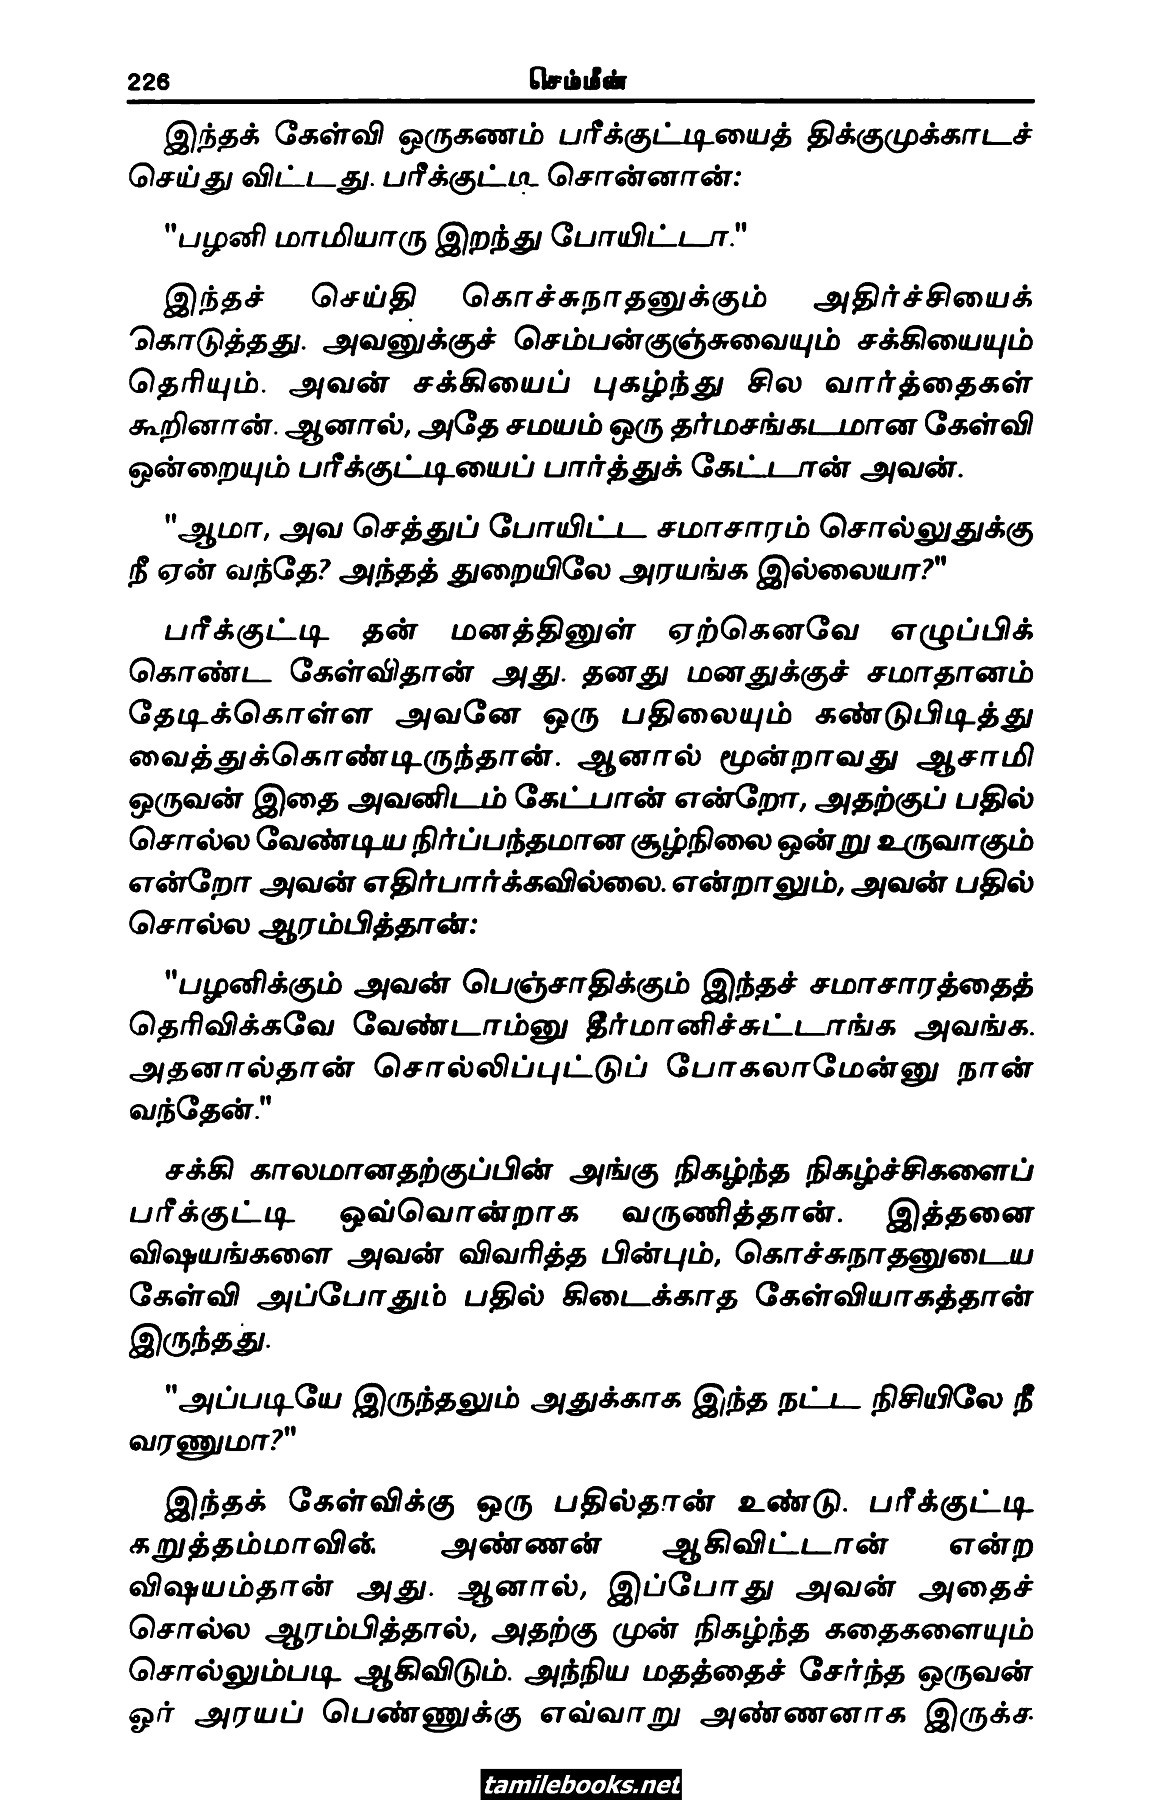 226
செம்மீன்
இந்தக் கேள்வி ஒருகணம் பரீக்குட்டியைத் திக்குமுக்காடச்
செய்து விட்டது. பரீக்குட்டி சொன்னான்:
"பழனி மாமியாரு இறந்து போயிட்டா."
இந்தச் செய்தி கொச்சுநாதனுக்கும் அதிர்ச்சியைக்
கொடுத்தது. அவனுக்குச் செம்பன்குஞ்சுவையும் சக்கியையும்
தெரியும். அவன் சக்கியைப் புகழ்ந்து சில வார்த்தைகள்
கூறினான். ஆனால், அதே சமயம் ஒரு தர்மசங்கடமான கேள்வி
ஒன்றையும் பரீக்குட்டியைப் பார்த்துக் கேட்டான் அவன்.
"ஆமா, அவ செத்துப் போயிட்ட சமாசாரம் சொல்லுதுக்கு
நீ ஏன் வந்தே? அந்தத் துறையிலே அரயங்க இல்லையா?"
பரீக்குட்டி தன் மனத்தினுள் ஏற்கெனவே எழுப்பிக்
கொண்ட கேள்விதான் அது. தனது மனதுக்குச் சமாதானம்
தேடிக்கொள்ள அவனே ஒரு பதிலையும் கண்டுபிடித்து
வைத்துக்கொண்டிருந்தான். ஆனால் மூன்றாவது ஆசாமி
ஒருவன் இதை அவனிடம் கேட்பான் என்றோ, அதற்குப் பதில்
சொல்ல வேண்டிய நிர்ப்பந்தமான சூழ்நிலை ஒன்று உருவாகும்
என்றோ அவன் எதிர்பார்க்கவில்லை. என்றாலும், அவன் பதில்
சொல்ல ஆரம்பித்தான்:
"பழனிக்கும் அவன் பெஞ்சாதிக்கும் இந்தச் சமாசாரத்தைத்
தெரிவிக்கவே வேண்டாம்னு தீர்மானிச்சுட்டாங்க அவங்க.
அதனால்தான் சொல்லிப்புட்டுப் போகலாமேன்னு நான்
வந்தேன்."
சக்கி காலமானதற்குப்பின் அங்கு நிகழ்ந்த நிகழ்ச்சிகளைப்
பரீக்குட்டி ஒவ்வொன்றாக வருணித்தான். இத்தனை
விஷயங்களை அவன் விவரித்த பின்பும், கொச்சுநாதனுடைய
கேள்வி அப்போதும் பதில் கிடைக்காத கேள்வியாகத்தான்
இருந்தது.
"அப்படியே இருந்தலும் அதுக்காக இந்த நட்ட நிசியிலே நீ
வரணுமா?"
இந்தக் கேள்விக்கு ஒரு பதில்தான் உண்டு. பரீக்குட்டி
கறுத்தம்மாவின் அண்ணன் ஆகிவிட்டான் என்ற
விஷயம்தான் அது. ஆனால், இப்போது அவன் அதைச்
சொல்ல ஆரம்பித்தால், அதற்கு முன் நிகழ்ந்த கதைகளையும்
சொல்லும்படி ஆகிவிடும். அந்நிய மதத்தைச் சேர்ந்த ஒருவன்
ஓர் அரயப் பெண்ணுக்கு எவ்வாறு அண்ணனாக இருக்க
tamilebooks.net